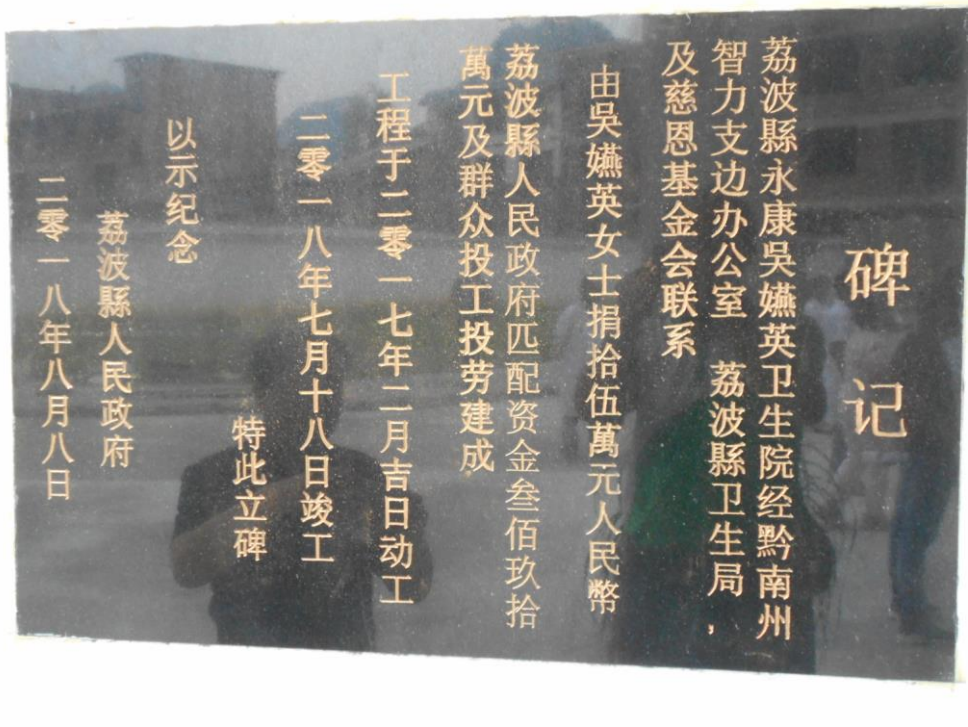 碑记
荔波縣永康吳嬿英卫生院经黔南州
智力支边办公室 荔波縣卫生局，
及慈恩基金会联系
由吳嬿英女士捐拾伍萬元人民幣
荔波縣人民政府匹配资金叁佰玖拾
萬元及群众投工投劳建成
工程于二零一七年二月吉日动工
二零一八年七月十八日竣工
特此立碑
以示纪念
荔波縣人民政府
二零一八年八月八日